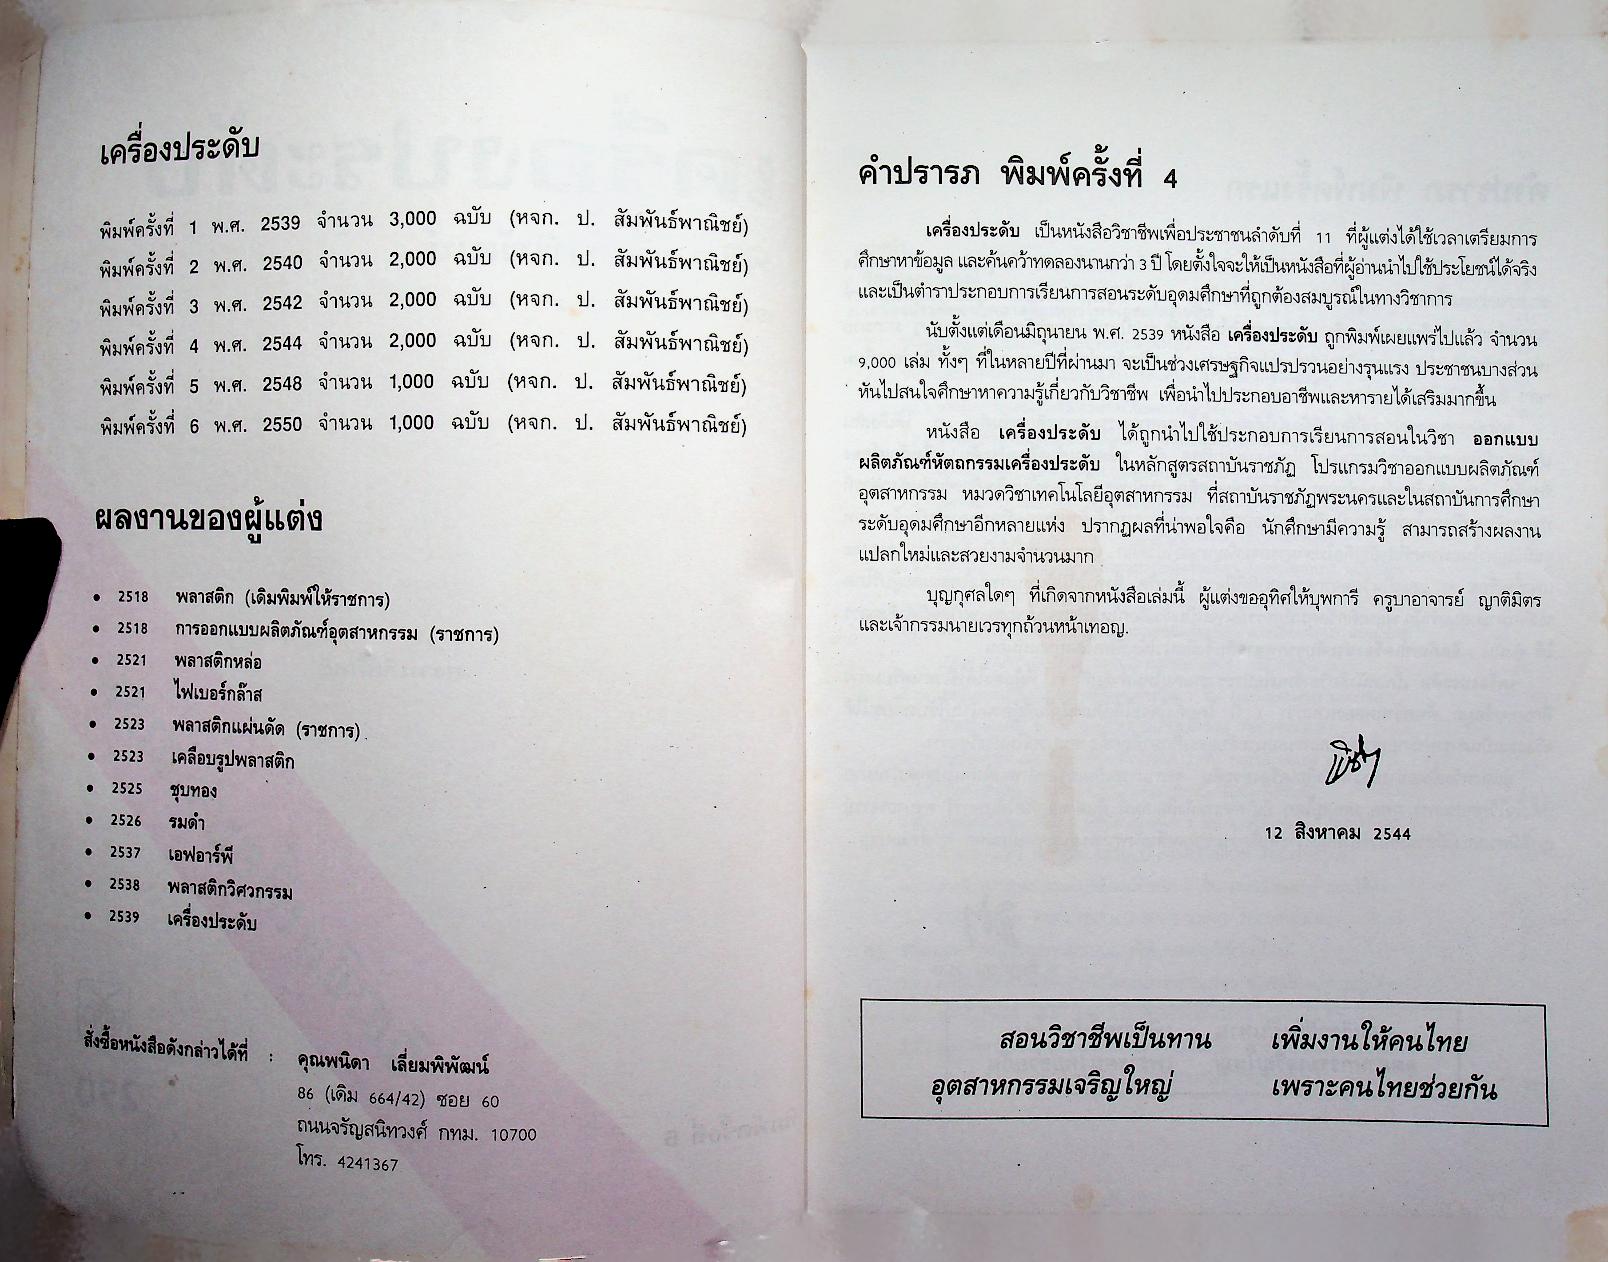 เครื่องประดับ
พิมพ์ครั้งที่ 1 พ.ศ. 2539 จำนวน 3,000 ฉบับ (หจก. ป. สัมพันธ์พาณิชย์)
พิมพ์ครั้งที่ 2 พ.ศ. 2540 จำนวน 2,000 ฉบับ (หจก. ป. สัมพันธ์พาณิชย์)
พิมพ์ครั้งที่ 3 พ.ศ. 2542 จำนวน 2,000 ฉบับ (หจก. ป. สัมพันธ์พาณิชย์)
พิมพ์ครั้งที่ 4 พ.ศ. 2544 จำนวน 2,000 ฉบับ (หจก. ป. สัมพันธ์พาณิชย์)
พิมพ์ครั้งที่ 5 พ.ศ. 2548 จำนวน 1,000 ฉบับ (หจก. ป. สัมพันธ์พาณิชย์)
พิมพ์ครั้งที่ 6 พ.ศ. 2550 จำนวน 1,000 ฉบับ (หจก. ป. สัมพันธ์พาณิชย์)
ผลงานของผู้แต่ง
• 2518 พลาสติก (เดิมพิมพ์ให้ราชการ)
• 2518 การออกแบบผลิตภัณฑ์อุตสาหกรรม (ราชการ)
• 2521 พลาสติกหล่อ
• 2521 ไฟเบอร์กล๊าส
• 2523 พลาสติกแผ่นดัด (ราชการ)
• 2523 เคลือบรูปพลาสติก
• 2525 ชุบทอง
• 2526 รมดำ
• 2537 เอฟอาร์พี
• 2538 พลาสติกวิศวกรรม
• 2539 เครื่องประดับ
สั่งซื้อหนังสือดังกล่าวได้ที่ : คุณพนิดา เลี่ยมพิพัฒน์
86 (เดิม 664/42) ซอย 60
ถนนจรัญสนิทวงศ์ กทม. 10700
โทร. 4241367
คำปรารภ พิมพ์ครั้งที่ 4
เครื่องประดับ เป็นหนังสือวิชาชีพเพื่อประชาชนลำดับที่ 11 ที่ผู้แต่งได้ใช้เวลาเตรียมการ
ศึกษาหาข้อมูล และค้นคว้าทดลองนานกว่า 3 ปี โดยตั้งใจจะให้เป็นหนังสือที่ผู้อ่านนำไปใช้ประโยชน์ได้จริง
และเป็นตำราประกอบการเรียนการสอนระดับอุดมศึกษาที่ถูกต้องสมบูรณ์ในทางวิชาการ
นับตั้งแต่เดือนมิถุนายน พ.ศ. 2539 หนังสือ เครื่องประดับ ถูกพิมพ์เผยแพร่ไปแล้ว จำนวน
9,000 เล่ม ทั้งๆ ที่ในหลายปีที่ผ่านมา จะเป็นช่วงเศรษฐกิจแปรปรวนอย่างรุนแรง ประชาชนบางส่วน
หันไปสนใจศึกษาหาความรู้เกี่ยวกับวิชาชีพ เพื่อนำไปประกอบอาชีพและหารายได้เสริมมากขึ้น
หนังสือ เครื่องประดับ ได้ถูกนำไปใช้ประกอบการเรียนการสอนในวิชา ออกแบบ
ผลิตภัณฑ์หัตถกรรมเครื่องประดับ ในหลักสูตรสถาบันราชภัฏ โปรแกรมวิชาออกแบบผลิตภัณฑ์
อุตสาหกรรม หมวดวิชาเทคโนโลยีอุตสาหกรรม ที่สถาบันราชภัฏพระนครและในสถาบันการศึกษา
ระดับอุดมศึกษาอีกหลายแห่ง ปรากฏผลที่น่าพอใจคือ นักศึกษามีความรู้ สามารถสร้างผลงาน
แปลกใหม่และสวยงามจำนวนมาก
บุญกุศลใดๆ ที่เกิดจากหนังสือเล่มนี้ ผู้แต่งขออุทิศให้บุพการี ครูบาอาจารย์ ญาติมิตร
และเจ้ากรรมนายเวรทุกถ้วนหน้าเทอญ.
12 สิงหาคม 2544
สอนวิชาชีพเป็นทาน เพิ่มงานให้คนไทย
อุตสาหกรรมเจริญใหญ่ เพราะคนไทยช่วยกัน